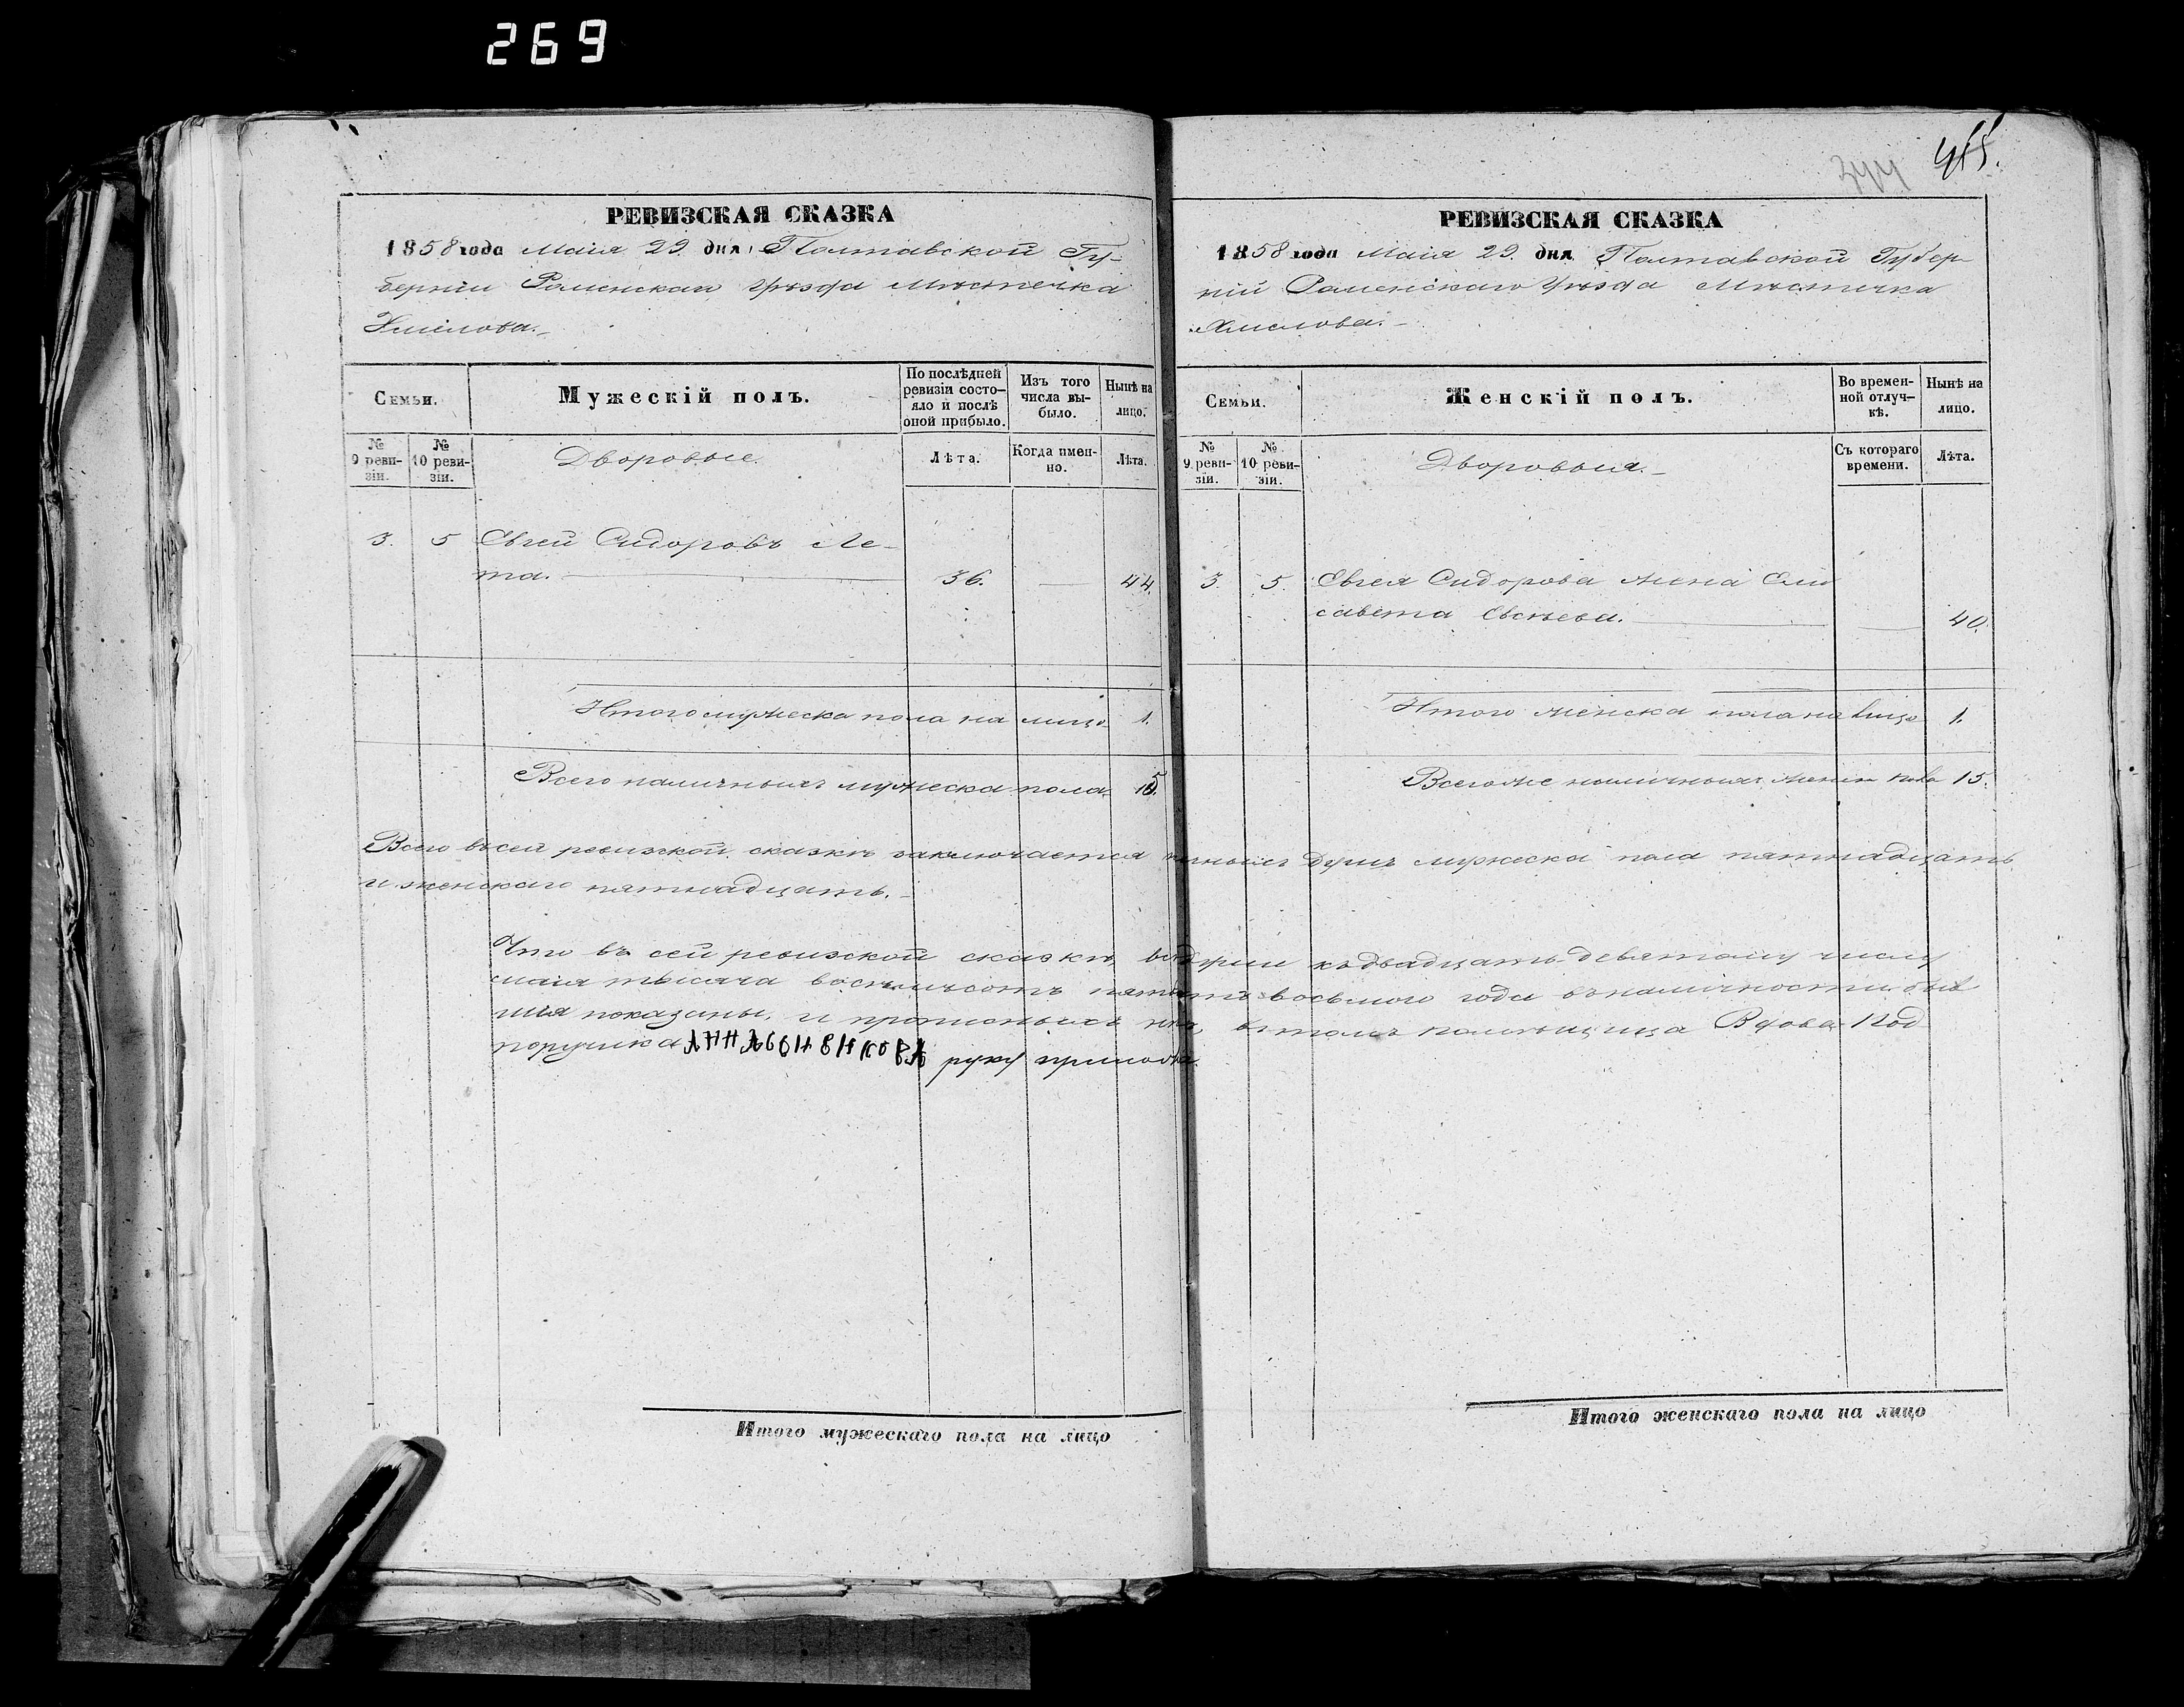 269
415.
344
РЕВИЗСКАЯ СКАЗКА
1858 года Маія 29. дня, Полтавской Гу-
берніи Роменскаго Уѣзда Мѣстечка
Хмѣлова.
Семьи.
Мужескій полъ.
По послѣдней ревизіи состо-яло и послѣ оной прибыло.
Изъ того числа вы-было.
Нынѣ на лицо.
№ 9 реви-зіи.
№ 10 реви-зіи.
Дворовые.
Лѣта.
Когда имен-но.
Лѣта.
3. 5 Евсей Сидоровъ Ле-
та. 36. — 44.
Итого мужеска пола на лицо 1.
Всего наличныхъ мужеска пола 15.
РЕВИЗСКАЯ СКАЗКА
1858 года Маія 29. дня Полтавской Губер-
ніи Роменскаго Уѣзда Мѣстечка
Хмелова.
Семьи.
Женскій полъ.
Во времен-ной отлуч-кѣ.
Нынѣ на лицо.
№ 9 реви-зіи.
№ 10 реви-зіи.
Дворовыя.
Съ котораго времени.
Лѣта.
3. 5. Евсея Сидорова жена Ели
савета Евсѣева. — 40.
Итого женска пола на лицо 1.
Всего же наличныхъ женск пола 15.
Всего въ сей ревизской сказкѣ заключается душъ мужеска пола пятнадцать
и женскаго пятнадцать.
Что въ сей ревизской сказкѣ, всѣ души къ двадцать девятому числу
маія тысяча восемьсотъ пятьдесятъ восьмого года въ наличности быв
шія показаны, и прописныхъ нѣтъ, въ томъ помѣщица Вдова Под
поручика руку приложила
Итого мужескаго пола на лицо
Итого женскаго пола на лицо